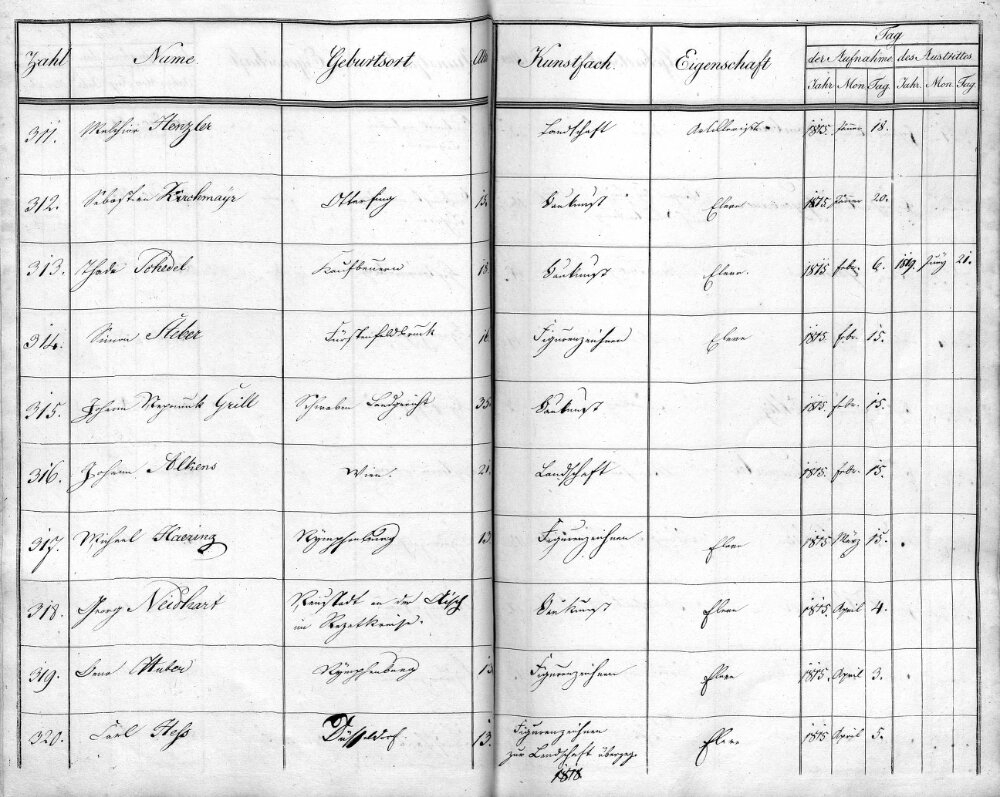 Zahl Name. Geburtsort Alter Kunstfach. Eigenschaft Tag
der Aufnahme des Austrittes
Jahr Mon Tag. Jahr. Mon Tag
311. Melchior Henzler Landschaft Artillerist. 1815. Jänner 18.
312. Sebastian Kirchmayr Otterfing 13. Baukunst Eleve 1815. Jänner 20.
313. Thade Schedel Kaufbeuern 18 Baukunst Eleve. 1815. febr. 6. 1819. Juny 21.
314. Simon Steber Fürstenfeldbruck Figurenzeichnen Eleve 1815. febr. 15.
315. Johann Nepomuk Grill Schwaben Landgericht 35. Baukunst 1815. febr. 15.
316. Johann Alkens Wien. 21. Landschaft 1815. febr. 15.
317. Michael Haering Nymphenburg 13. Figurenzeichnen Eleve 1815 März 15.
318. Georg Neidhart Neustadt an der Aisch Baukunst Eleve 1815. April 4.
im Rezatkreise.
319. Huber Nymphenburg 13 Figurenzeichnen Eleve 1815. April 3.
320. Carl Hess Düsseldorf. 13. Figurenzeichnen Eleve 1815 April 5.
zur Landschaft überggg.
1818